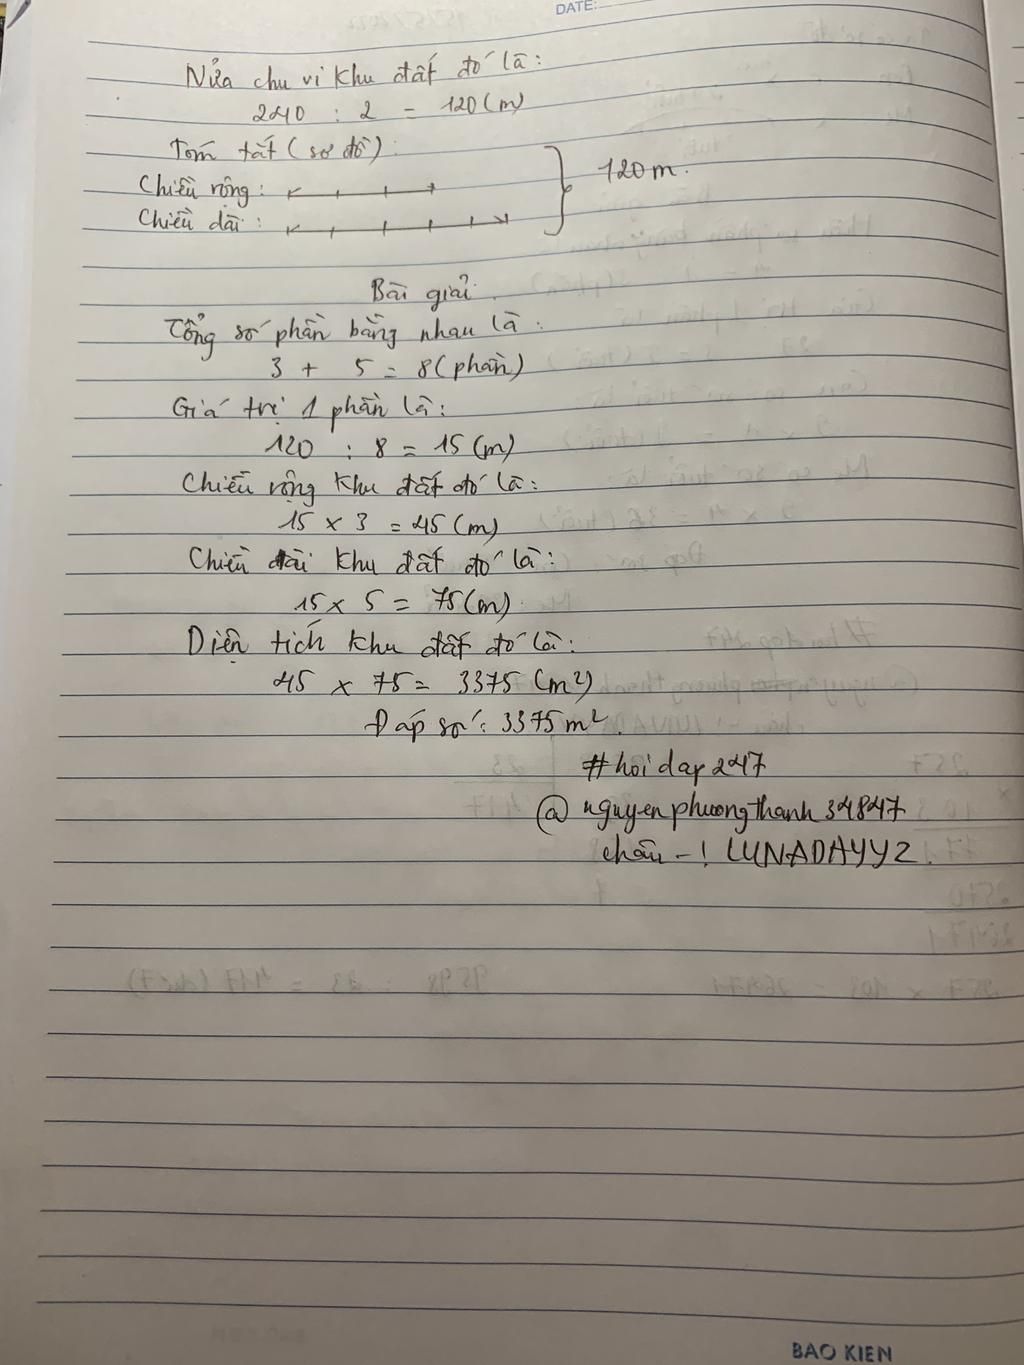 DATE:
Nửa chu vi khu đất đó là:
240 : 2 = 120 (m)
Tóm tắt (sơ đồ):
Chiều rộng:
Chiều dài:
120 m.
Bài giải.
Tổng số phần bằng nhau là:
3 + 5 = 8 (phần)
Giá trị 1 phần là:
120 : 8 = 15 (m)
Chiều rộng khu đất đó là:
15 x 3 = 45 (m)
Chiều dài khu đất đó là:
15 x 5 = 75 (m)
Diện tích khu đất đó là:
45 x 75 = 3375 (m²)
Đáp số: 3375 m².
#hoidap247
@nguyenphuongthanh34847
LUNADAYYZ.
BAO KIEN